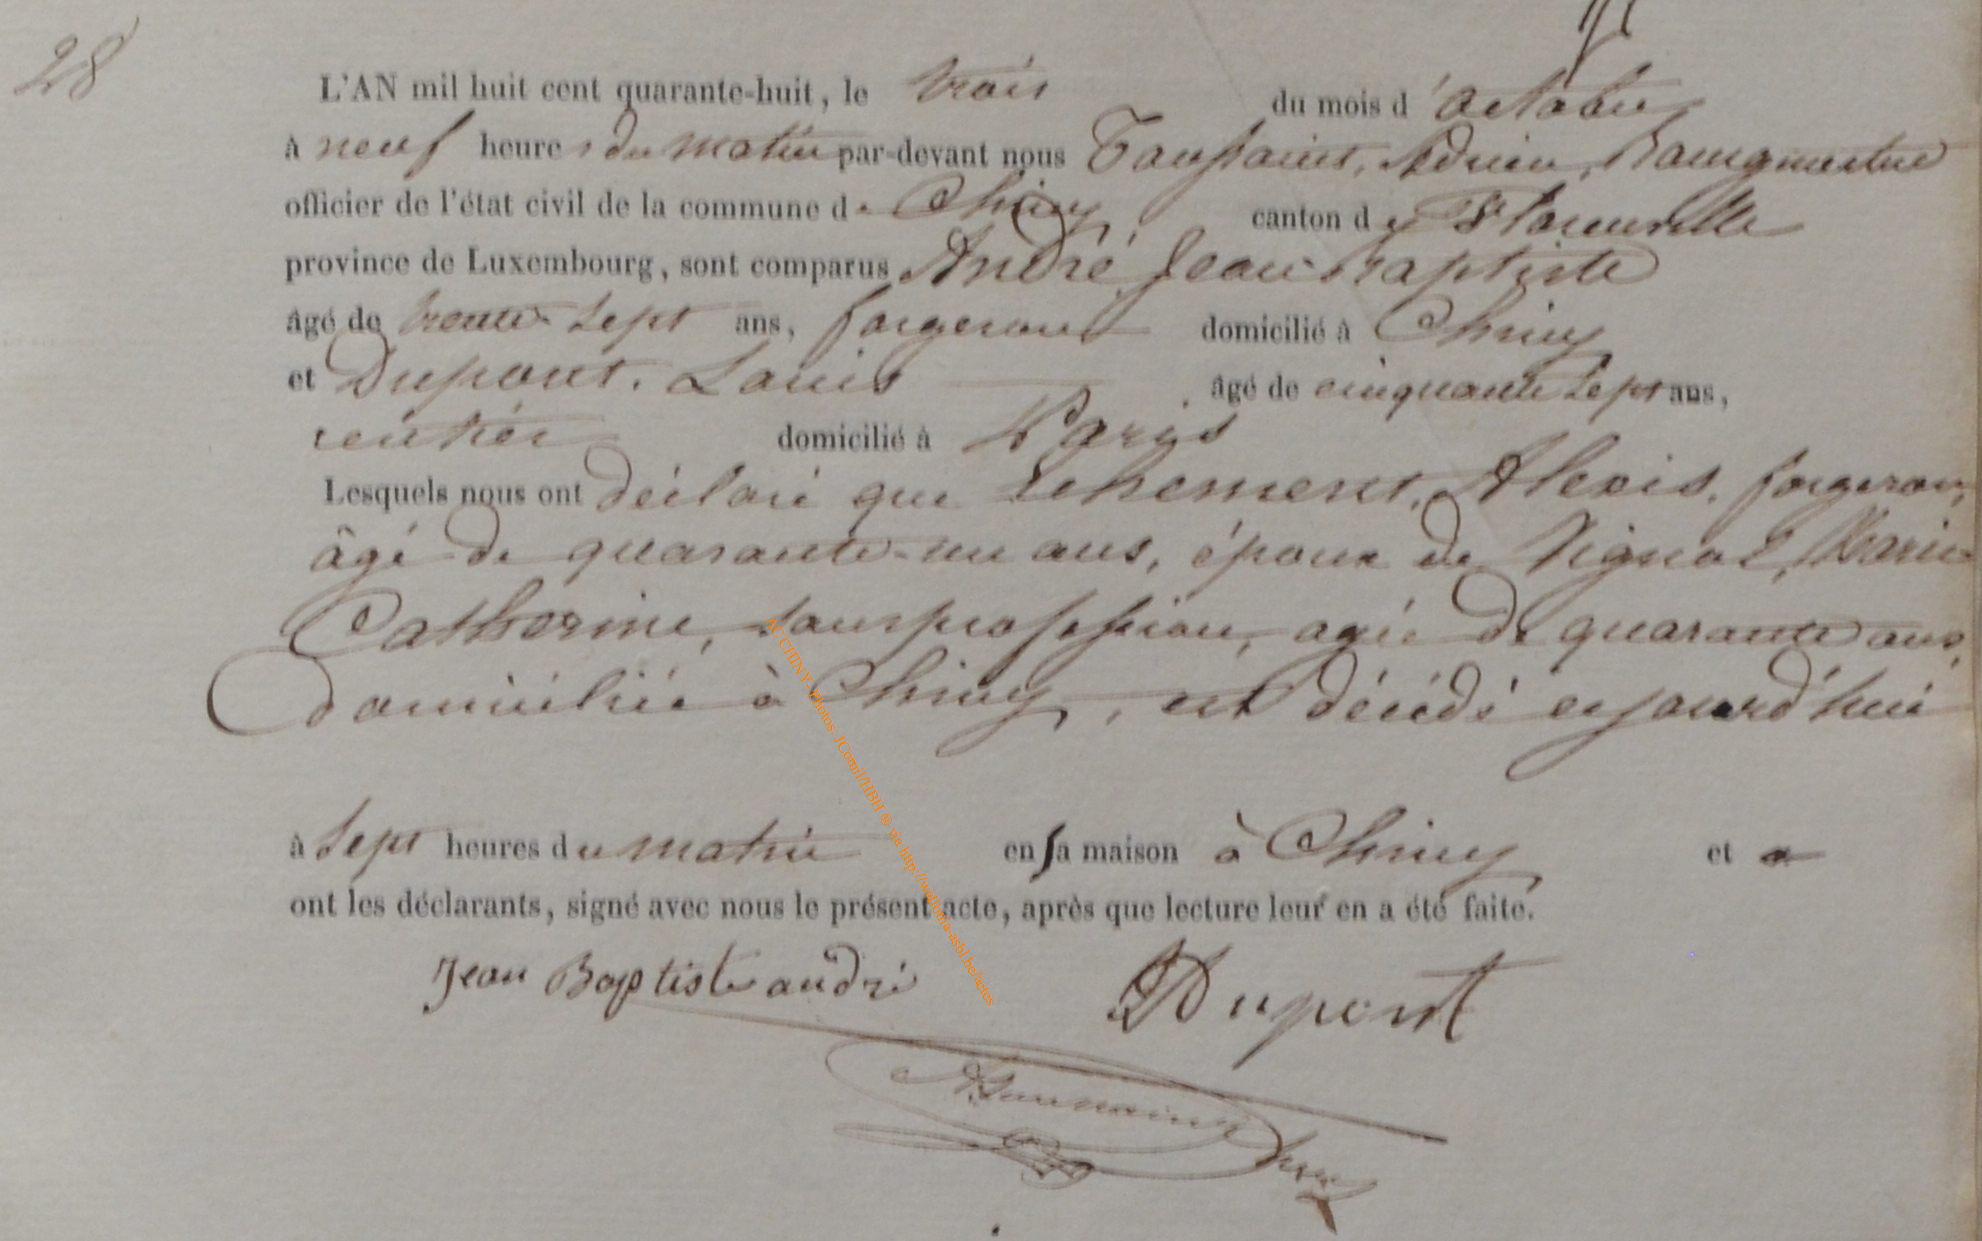 28
L'AN mil huit cent quarante-huit, le trois du mois d'octobre
à neuf heures du matin par-devant nous Toussaint, Adrien, Bourgmestre
officier de l'état civil de la commune de Chiny canton de Florenville
province de Luxembourg, sont comparus André Jean Baptiste
âgé de trente-sept ans, forgeron domicilié à Chiny
et Dupont, Louis âgé de cinquante sept ans,
rentier domicilié à Paris
Lesquels nous ont déclaré que Alexis, forgeron,
âgé de quarante-un ans, époux de Marie
Catherine, sans profession, agée de quarante ans,
domiciliée à Chiny, est décédé cejourd'hui
à sept heures du matin en sa maison à Chiny et
ont les déclarants, signé avec nous le présent acte, après que lecture leur en a été faite.
Jean Baptiste andré Dupont
AToussaint